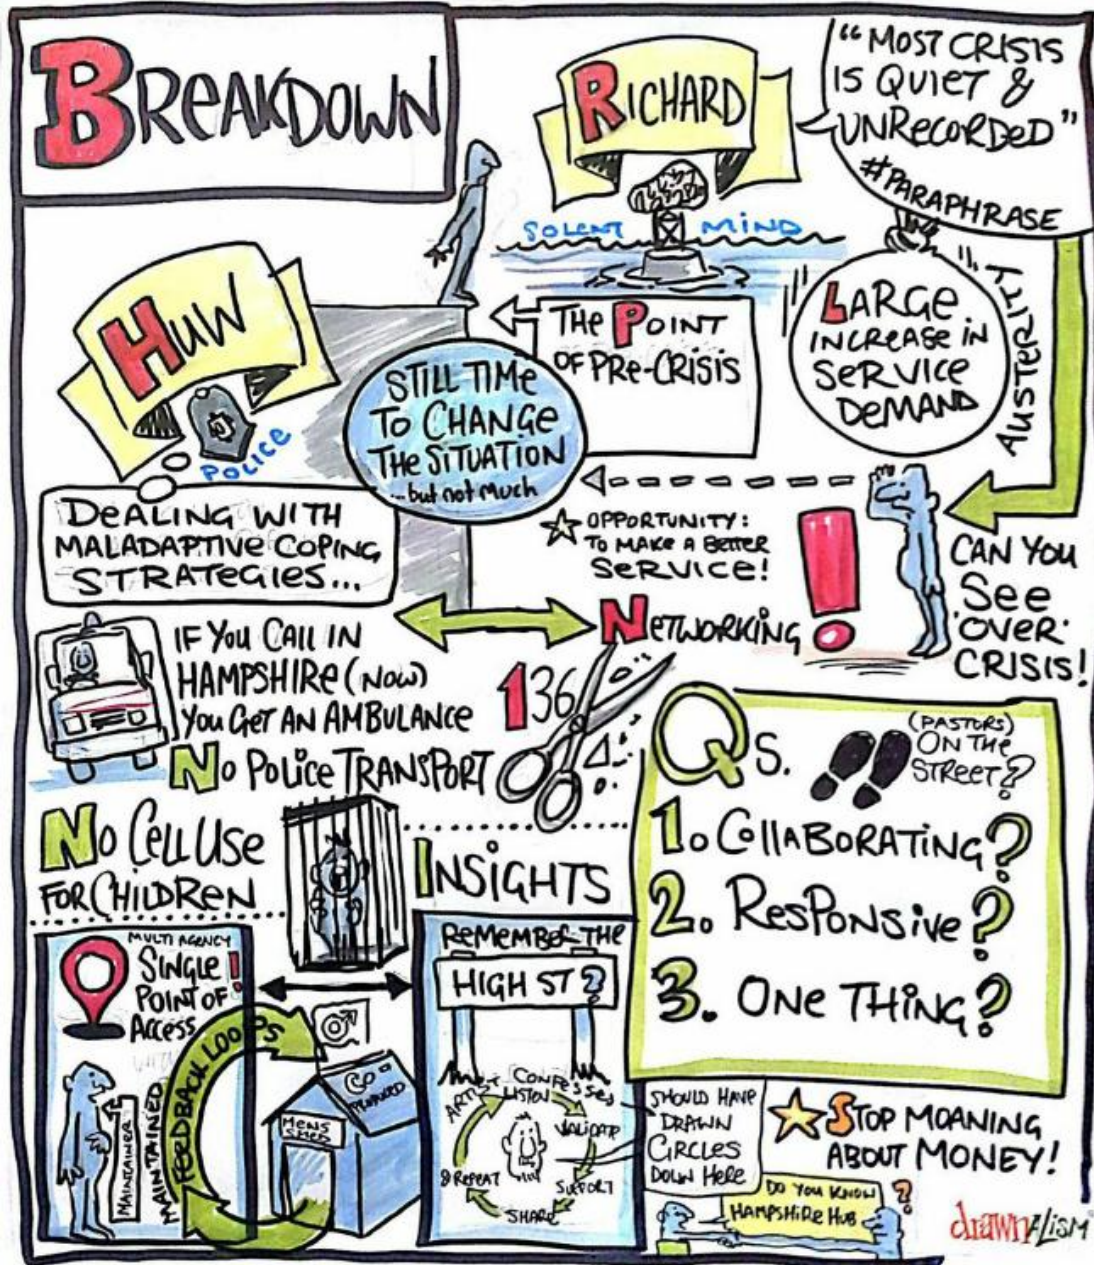 BREAKDOWN
RICHARD
SOLENT MIND
"MOST CRISIS
IS QUIET &
UNRECORDED"
#PARAPHRASE
LARGE
INCREASE IN
SERVICE
DEMAND
AUSTERITY
THE POINT
OF PRE-CRISIS
HUW
POLICE
STILL TIME
TO CHANGE
THE SITUATION
...but not much
DEALING WITH
MALADAPTIVE COPING
STRATEGIES...
OPPORTUNITY:
TO MAKE A BETTER
SERVICE!
NETWORKING
!
CAN YOU
SEE
'OVER'
CRISIS!
IF YOU CALL IN
HAMPSHIRE (NOW)
YOU GET AN AMBULANCE
136
NO POLICE TRANSPORT
NO CELL USE
FOR CHILDREN
QS.
(PASTORS)
ON THE
STREET?
1. COLLABORATING?
2. RESPONSIVE?
3. ONE THING?
INSIGHTS
MULTI AGENCY
SINGLE!
POINT OF
ACCESS
FEEDBACK LOOPS
MAINTAINER
MAINTAINED
CO-
MENS
SHED
REMEMBER THE
HIGH ST?
ARTIST CONFESSES
LISTEN
VALIDATE
SUPPORT
SHARE
& REPEAT
SHOULD HAVE
DRAWN
CIRCLES
DOWN HERE
STOP MOANING
ABOUT MONEY!
DO YOU KNOW
HAMPSHIRE HUB
?
drawnalism